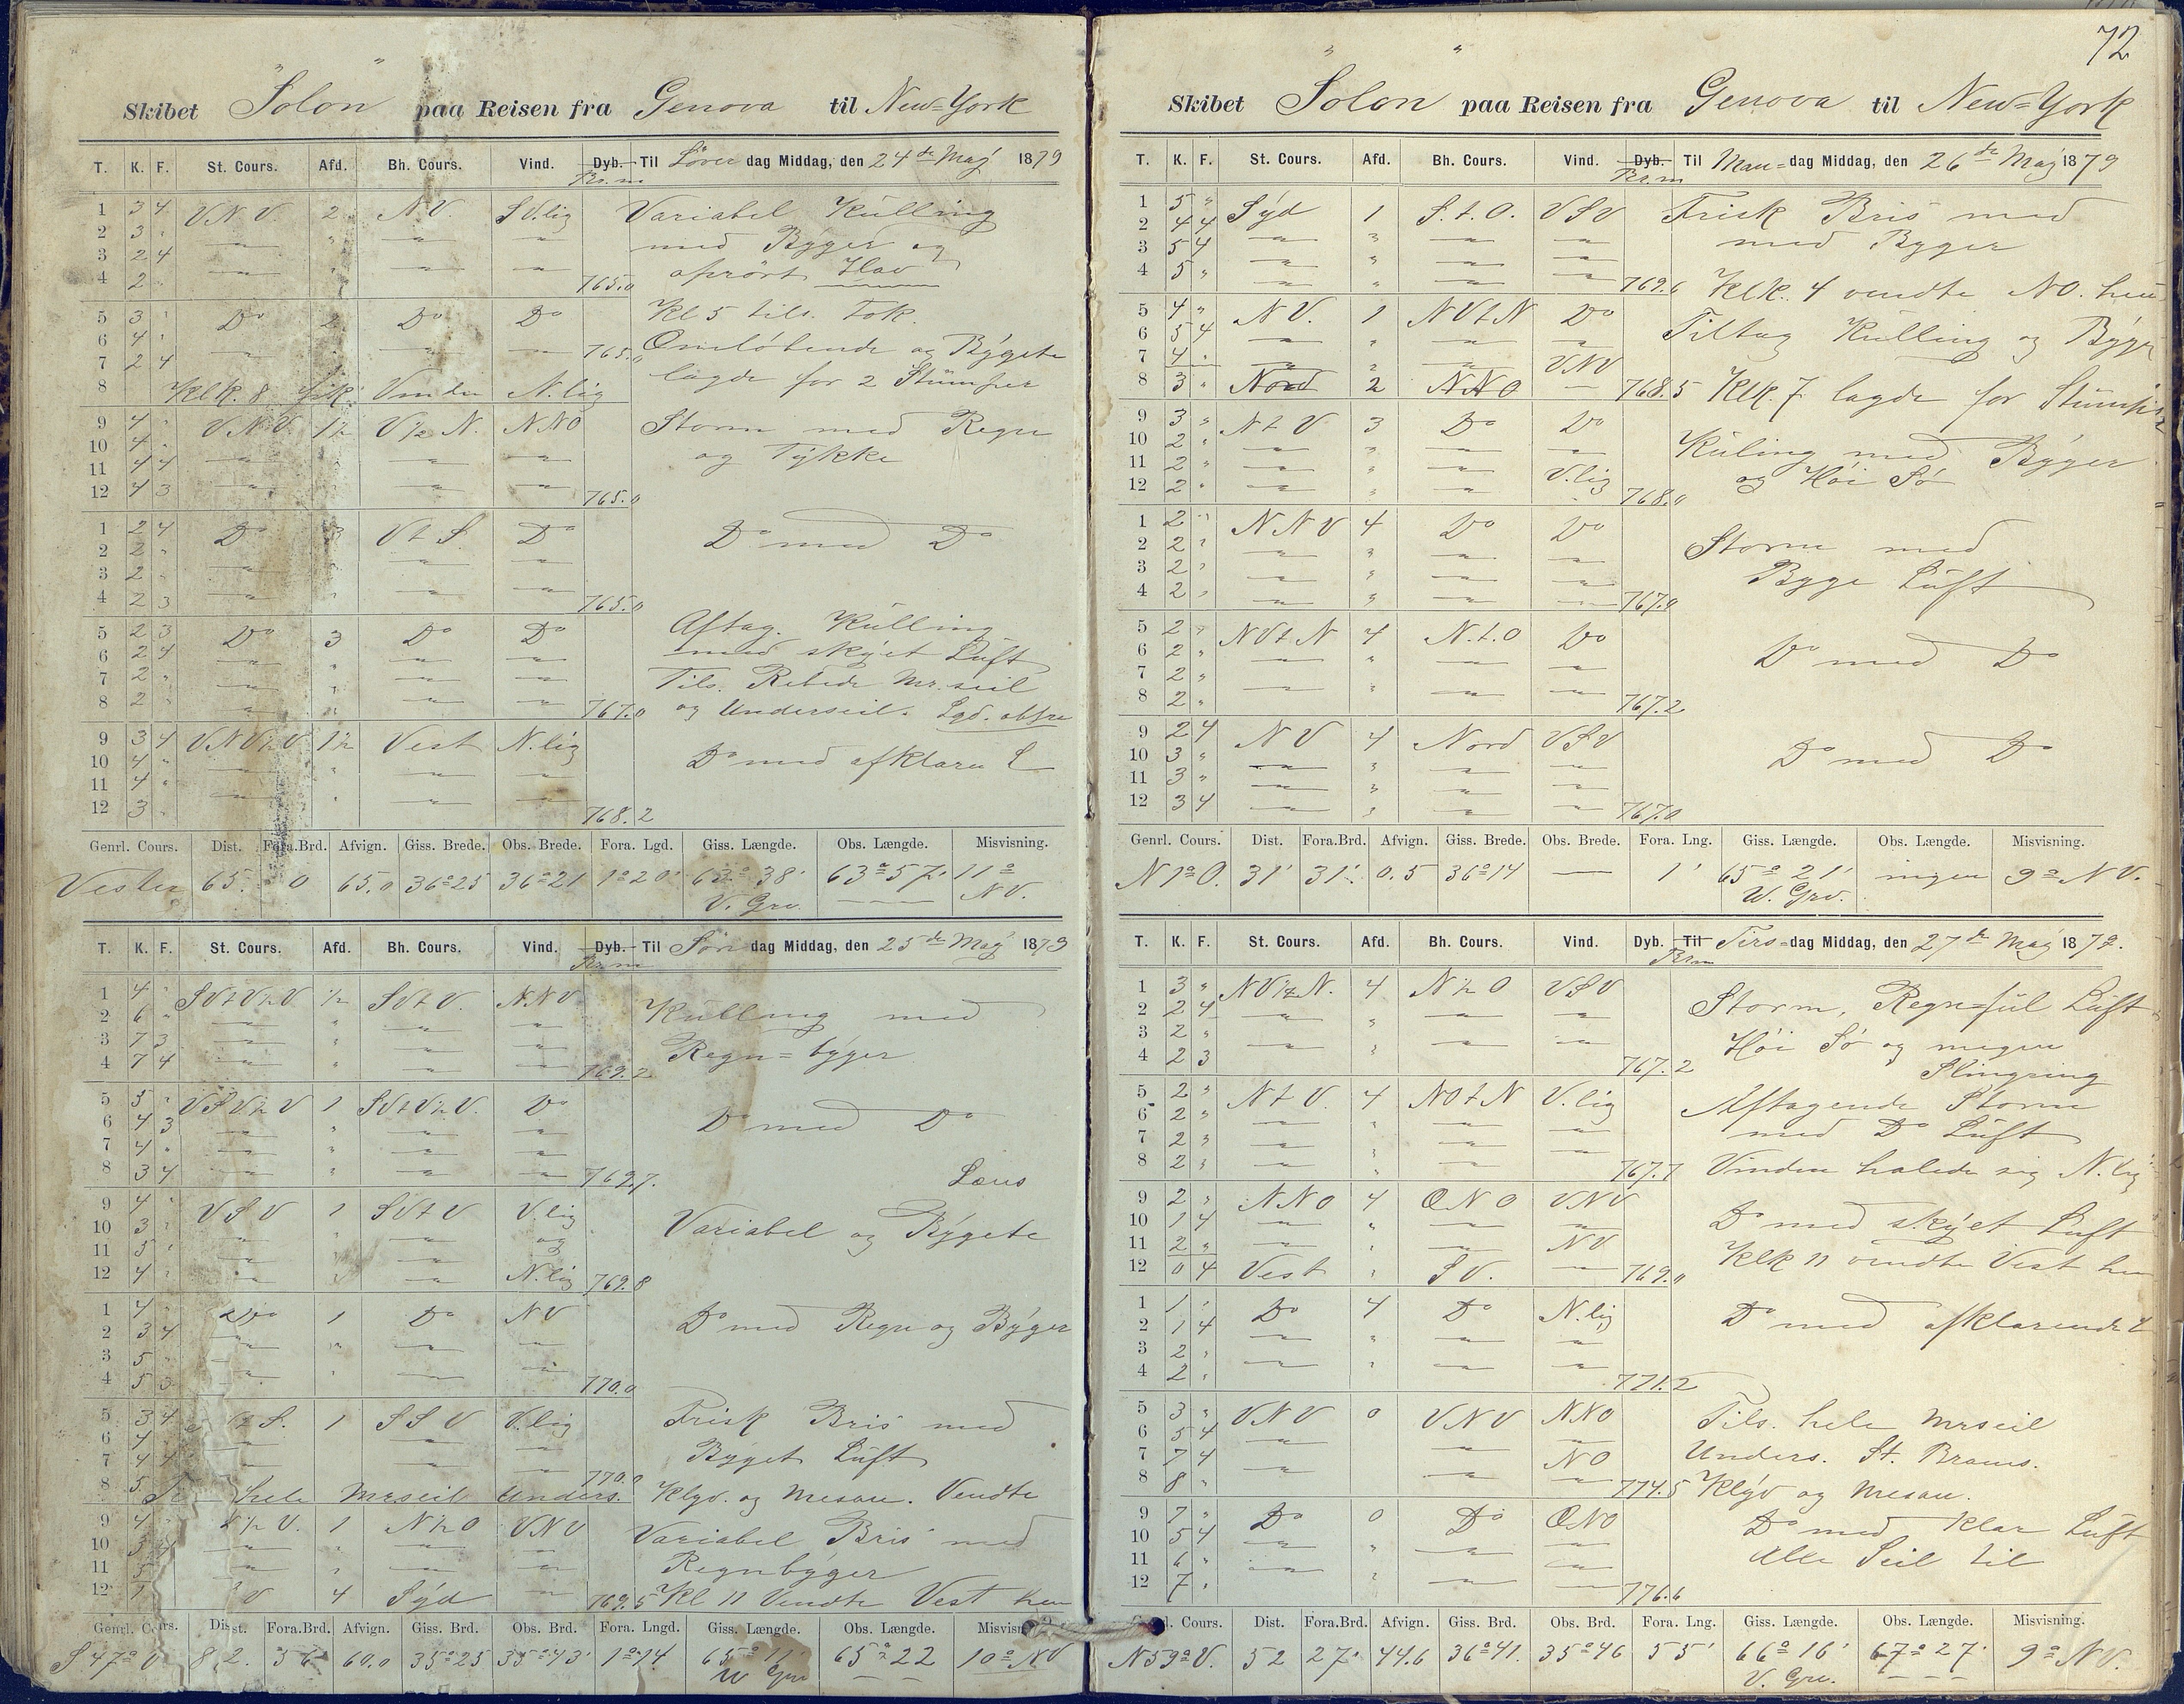 Skibet "Solon" paa Reisen fra Genova til New=York
T. K. F. St. Cours. Afd. Bh. Cours. Vind. Dyb. Til Löver dag Middag, den 24de Maj 1879
Br.m
1 3 4 V.N.V. 2 N.V. S.V.lig Variabel Kulling
2 3 " med Byger og
3 2 4 oprört Hav
4 2 " 765.0
5 3 " Do 2 Do Do Kl 5 tils. Fok.
6 4 " 765.0 Omlöbende og Bygete
7 2 4 lagde for 2 Stumper
8 Klk. 8 fik Vinden N.lig
9 4 " V.N.V. 1½ V½N. NNO Storm med Regn
10 4 " og Tykke
11 4 4
12 4 3 765.0
1 2 4 Do 3 V t S. Do Do med Do
2 2 "
3 2 "
4 2 3 765.0
5 2 3 Do 3 Do Do Aftag. Kulling
6 2 4 med skyet Luft
7 2 " Tils. Rebede Mr.seil
8 2 " 767.0 og Underseil.
9 3 4 VNV½V 1½ Vest N.lig Do med afklaren L
10 4 "
11 4 "
12 3 " 768.2
Genrl. Cours. Dist. Fora.Brd. Afvign. Giss. Brede. Obs. Brede. Fora. Lgd. Giss. Længde. Obs. Længde. Misvisning.
Vester 65. 0 65.0 36°25 36°21 1°20' 63°38' 63°57' 11°
V. Grv. NV.
T. K. F. St. Cours. Afd. Bh. Cours. Vind. Dyb. Til Søn dag Middag, den 25de Maj 1879
Br.m
1 4 " SVtV½V ½ SVtV. N.N.V Kulling med
2 6 " Regn=byger
3 7 3
4 7 4 769.2
5 5 " VSV½V 1 SVtV½V. Do Do med Do
6 4 3
7 4 "
8 3 4 769.7. Læns
9 4 " VSV 1 SVtV V.lig Variabel og Bygete
10 3 " og
11 5 "
12 4 " N.lig 769.8
1 4 " Do 1 Do NV Do med Regn og Byger
2 3 4
3 5 "
4 5 3 770.0
5 3 4 ½ S. 1 SSV V.lig Frisk Bris med
6 4 " Byget Luft
7 4 4 770.0
8 5 hele Mrseil Unders. Klyv. og Mesan. Vendte
9 4 " ½ V. 1 N½O VNV Variabel Bris med
10 3 4 Regnbyger
11 5
12 1 V 4 Syd 769.5 Kl 11 Vendte Vest hen
Genrl. Cours. Dist. Fora.Brd. Afvign. Giss. Brd. Obs. Brd. Fora. Lngd. Giss. Længde. Obs. Længde. Misvisn
S.47°V 82. 56 60.0 35°25 35°43' 1°14 65°11' 65°22 10° NV
W Grv
72
Skibet "Solon" paa Reisen fra Genova til New=York
T. K. F. St. Cours. Afd. Bh. Cours. Vind. Dyb. Til Man=dag Middag, den 26de Maj 1879
Br.m
1 5 " Syd 1 S.t.O. VSV Frisk Bris med
2 4 4 med Byger
3 5 4
4 5 " 769.6 Klk. 4 vendte NO. hen
5 4 " NV. 1 NVtN Do Tiltag Kulling og Byger
6 5 4
7 4 " VNV
8 3 " Nord 2 NNO 768.5 Klk. 7 lagde for Stumper
9 3 " NtV 3 Do Do Kuling med Byger
10 2 " og Höi Sö
11 2 " V.lig
12 2 " 768.0
1 2 " NNV 4 Do Do Storm med
2 2 " Byge Luft
3 2 "
4 2 " 767.0
5 2 " NVtN 4 N.t.O Do Do med Do
6 2 "
7 2 "
8 2 " 767.2
9 2 4 NV 4 Nord VSV Do med Do
10 3 "
11 3 "
12 3 4 767.0
Genrl. Cours. Dist. Fora.Brd. Afvign. Giss. Brede. Obs. Brede. Fora. Lng. Giss. Længde. Obs. Længde. Misvisning.
N 1° O. 31' 31'. 0.5 36°14 — 1' 65°21' ingen 9° NV.
W. Grv.
T. K. F. St. Cours. Afd. Bh. Cours. Vind. Dyb. Til Tirs=dag Middag, den 27de Maj 1879.
Br.m
1 3 " NV½N. 4 N½O VSV Storm, Regn=ful Luft
2 2 4 Höi Sö og megen
3 2 " Slingring
4 2 3 767.2
5 2 " NtV. 4 NOtN V.lig Aftagende Storm
6 2 " med Do Luft
7 2 3
8 2 " 767.7 Vinden halede sig N.lig
9 2 " NNO 4 ONO VNV Do med skyet Luft
10 1 4
11 2 " NV Klk 11 vendte Vest hen
12 0 4 Vest " SV. 769.0
1 1 " Do 4 Do N.lig Do med afklarende L
2 1 4
3 2 "
4 2 " 771.2
5 3 " VNV 0 VNV NNO Tils. hele Mrseil
6 5 4 Unders. St. Brams.
7 7 4 NO
8 8 " 774.5 Klyv og Mesan.
9 7 " Do 0 Do ONO Do med klar Luft
10 5 4 Alle Seil til
11 6 "
12 7 " 776.6
l. Cours. Dist. Fora.Brd. Afvign. Giss. Brd. Obs. Brd. Fora. Lng. Giss. Længde. Obs. Længde. Misvisning.
N59°V. 52 27' 44.6 36°41. 35°46 55' 66°16' 67°27' 9° NV.
V. Grv.